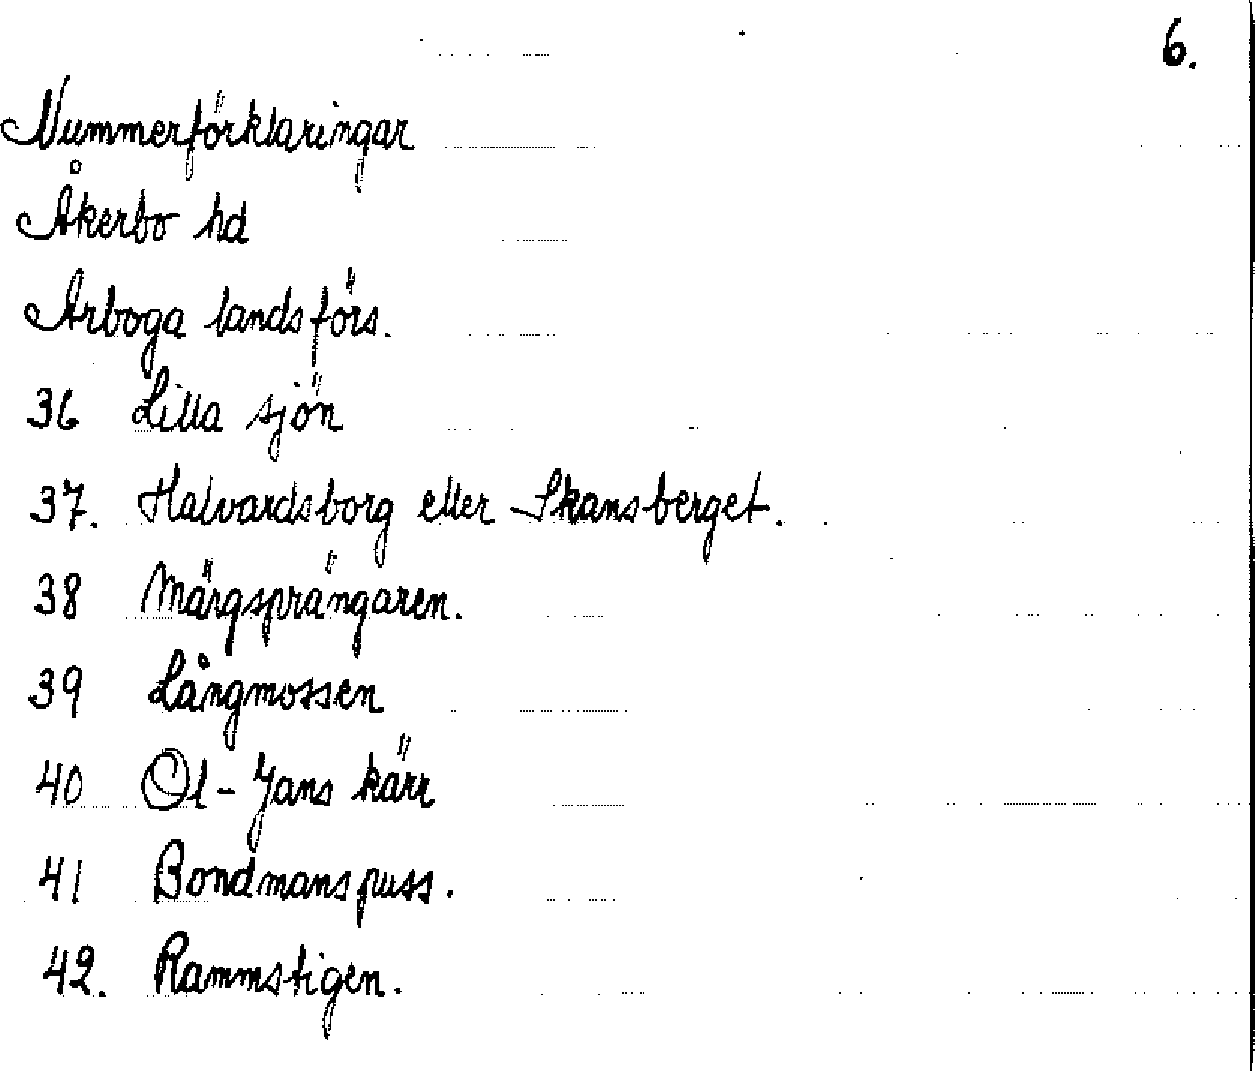 6.
Nummerförklaringar
Åkerbo hd
Arboga landsförs.
36 Lilla sjön
37. Halvardsborg eller Skansberget.
38 Märgsprängaren.
39 Långmossen
40 Ol-Jans kärr
41 Bondmanspuss.
42. Rammstigen.